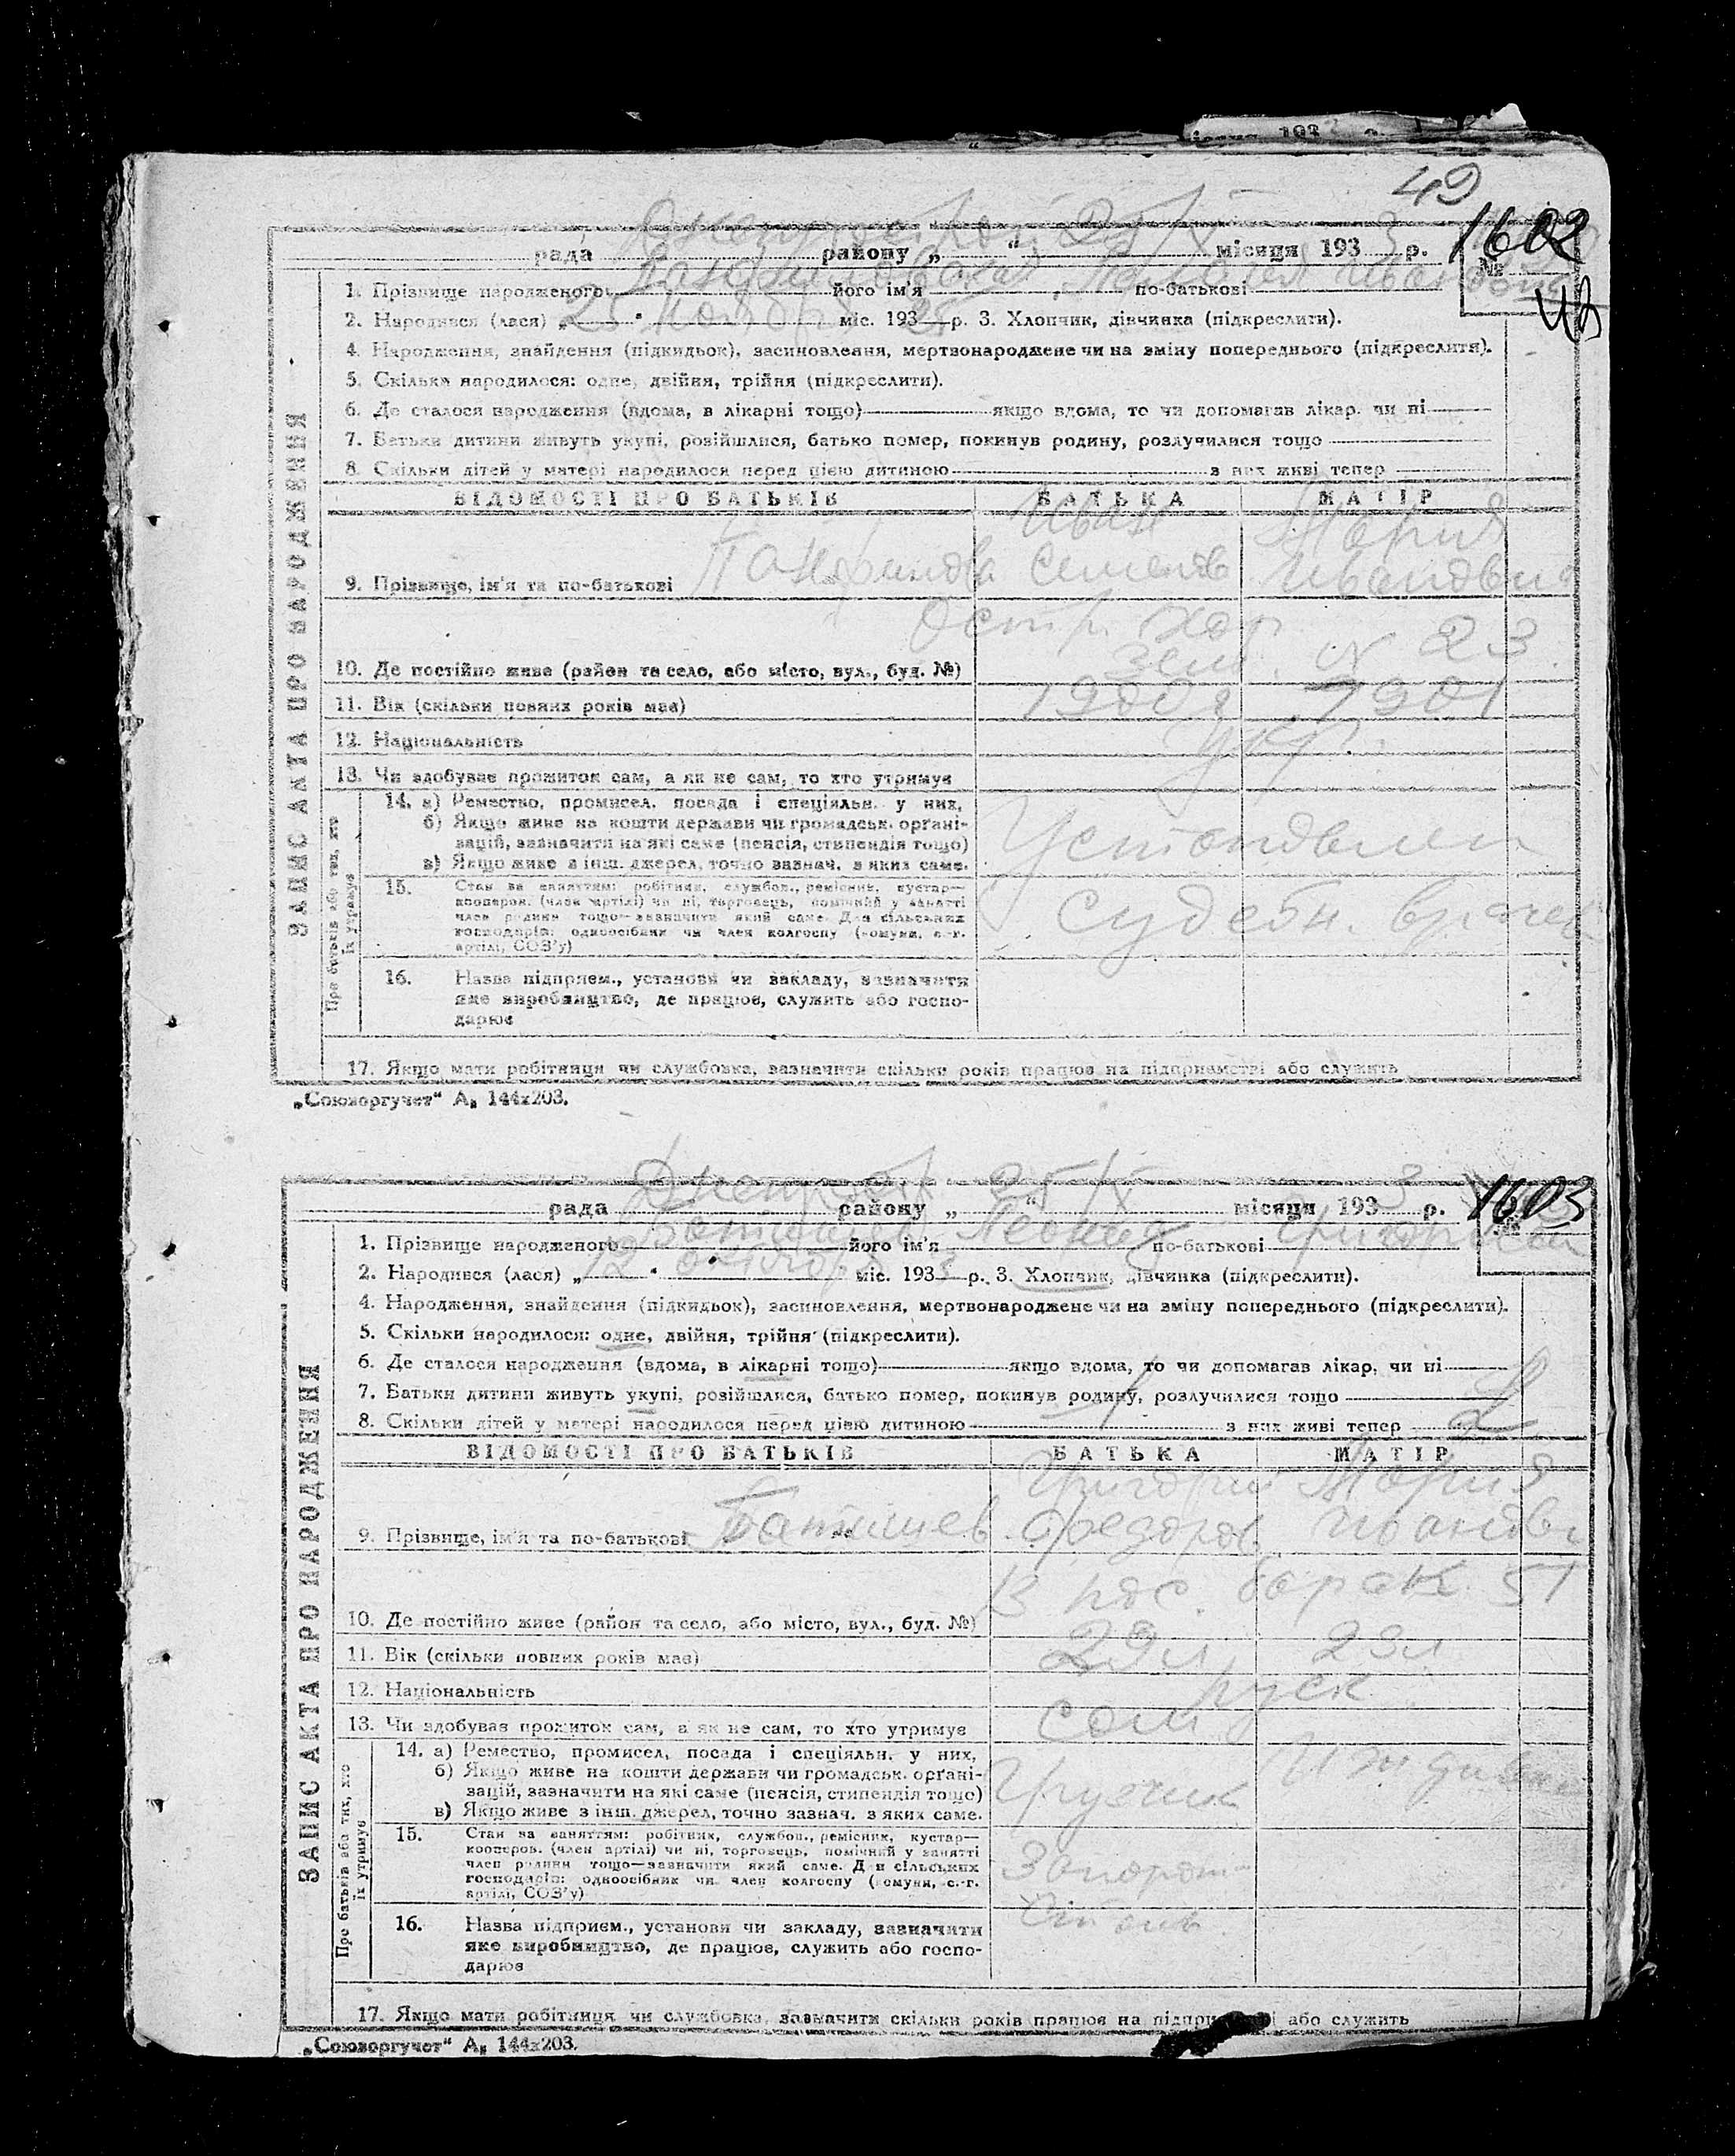 49
рада району „ 25 “ IX місяця 1933 р. № 1602
1. Прізвище народженого його ім'я по-батькові
2. Народився (лася) „25“ міс. 193 р. 3. Хлопчик, дівчинка (підкреслити).
4. Народження, знайдення (підкидьок), засиновлення, мертвонароджене чи на зміну попереднього (підкреслити).
5. Скільки народилося: одне, двійня, трійня (підкреслити).
6. Де сталося народження (вдома, в лікарні тощо) якщо вдома, то чи допомагав лікар, чи ні
7. Батьки дитини живуть укупі, розійшлися, батько помер, покинув родину, розлучилися тощо
8. Скільки дітей у матері народилося перед цією дитиною з них живі тепер
ВІДОМОСТІ ПРО БАТЬКІВ БАТЬКА МАТІР
Иван Мария
9. Прізвище, ім'я та по-батькові Семенов Ивановна
Остр. Хор
10. Де постійно живе (район та село, або місто, вул., буд. №) зем. № 23
11. Вік (скільки повних років має) 1900 1901
12. Національність укр.
13. Чи здобуває прожиток сам, а як не сам, то хто утримує
14. а) Ремество, промисел, посада і спеціяльн. у них,
б) Якщо живе на кошти держави чи громадськ. органі-
зацій, зазначити на які саме (пенсія, стипендія тощо)
в) Якщо живе з інш. джерел, точно зазнач. з яких саме.
Установлен
15. Стан за заняттям: робітник, службов., ремісник, кустар—
кооперов. (член артілі) чи ні, торговець, помічний у занятті
член родини тощо—зазначити який саме. Для сільських
господарів: одноосібник чи член колгоспу (комуни, с.-г.
артілі, СОЗ'у)
судебн. врачем
16. Назва підприєм., установи чи закладу, зазначити
яке виробництво, де працює, служить або госпо-
дарює
17. Якщо мати робітниця чи службовка, зазначити скільки років працює на підприємстві або служить
ЗАПИС АКТА ПРО НАРОДЖЕННЯ
Про батьків або тих, хто
їх утримує
„Союзоргучет“ А₅ 144х203.
рада району „ 25 “ IX місяця 1933 р. № 1603
1. Прізвище народженого його ім'я Леонид по-батькові
2. Народився (лася) „12“ міс. 1933 р. 3. Хлопчик, дівчинка (підкреслити).
4. Народження, знайдення (підкидьок), засиновлення, мертвонароджене чи на зміну попереднього (підкреслити).
5. Скільки народилося: одне, двійня, трійня (підкреслити).
6. Де сталося народження (вдома, в лікарні тощо) якщо вдома, то чи допомагав лікар, чи ні
7. Батьки дитини живуть укупі, розійшлися, батько помер, покинув родину, розлучилися тощо
8. Скільки дітей у матері народилося перед цією дитиною 1 з них живі тепер 2
ВІДОМОСТІ ПРО БАТЬКІВ БАТЬКА МАТІР
Григорий Мария
9. Прізвище, ім'я та по-батькові Федоров Ивановн
13 пос. барак 51
10. Де постійно живе (район та село, або місто, вул., буд. №)
11. Вік (скільки повних років має) 29 л 23 л
12. Національність руск
13. Чи здобуває прожиток сам, а як не сам, то хто утримує сам
14. а) Ремество, промисел, посада і спеціяльн. у них,
б) Якщо живе на кошти держави чи громадськ. органі-
зацій, зазначити на які саме (пенсія, стипендія тощо)
в) Якщо живе з інш. джерел, точно зазнач. з яких саме.
Грузчик Иждивен
15. Стан за заняттям: робітник, службов., ремісник, кустар—
кооперов. (член артілі) чи ні, торговець, помічний у занятті
член родини тощо—зазначити який саме. Для сільських
господарів: одноосібник чи член колгоспу (комуни, с.-г.
артілі, СОЗ'у)
Запорож-
16. Назва підприєм., установи чи закладу, зазначити
яке виробництво, де працює, служить або госпо-
дарює
17. Якщо мати робітниця чи службовка, зазначити скільки років працює на підпри і або служить
ЗАПИС АКТА ПРО НАРОДЖЕННЯ
Про батьків або тих, хто
їх утримує
„Союзоргучет“ А₅ 144х203.